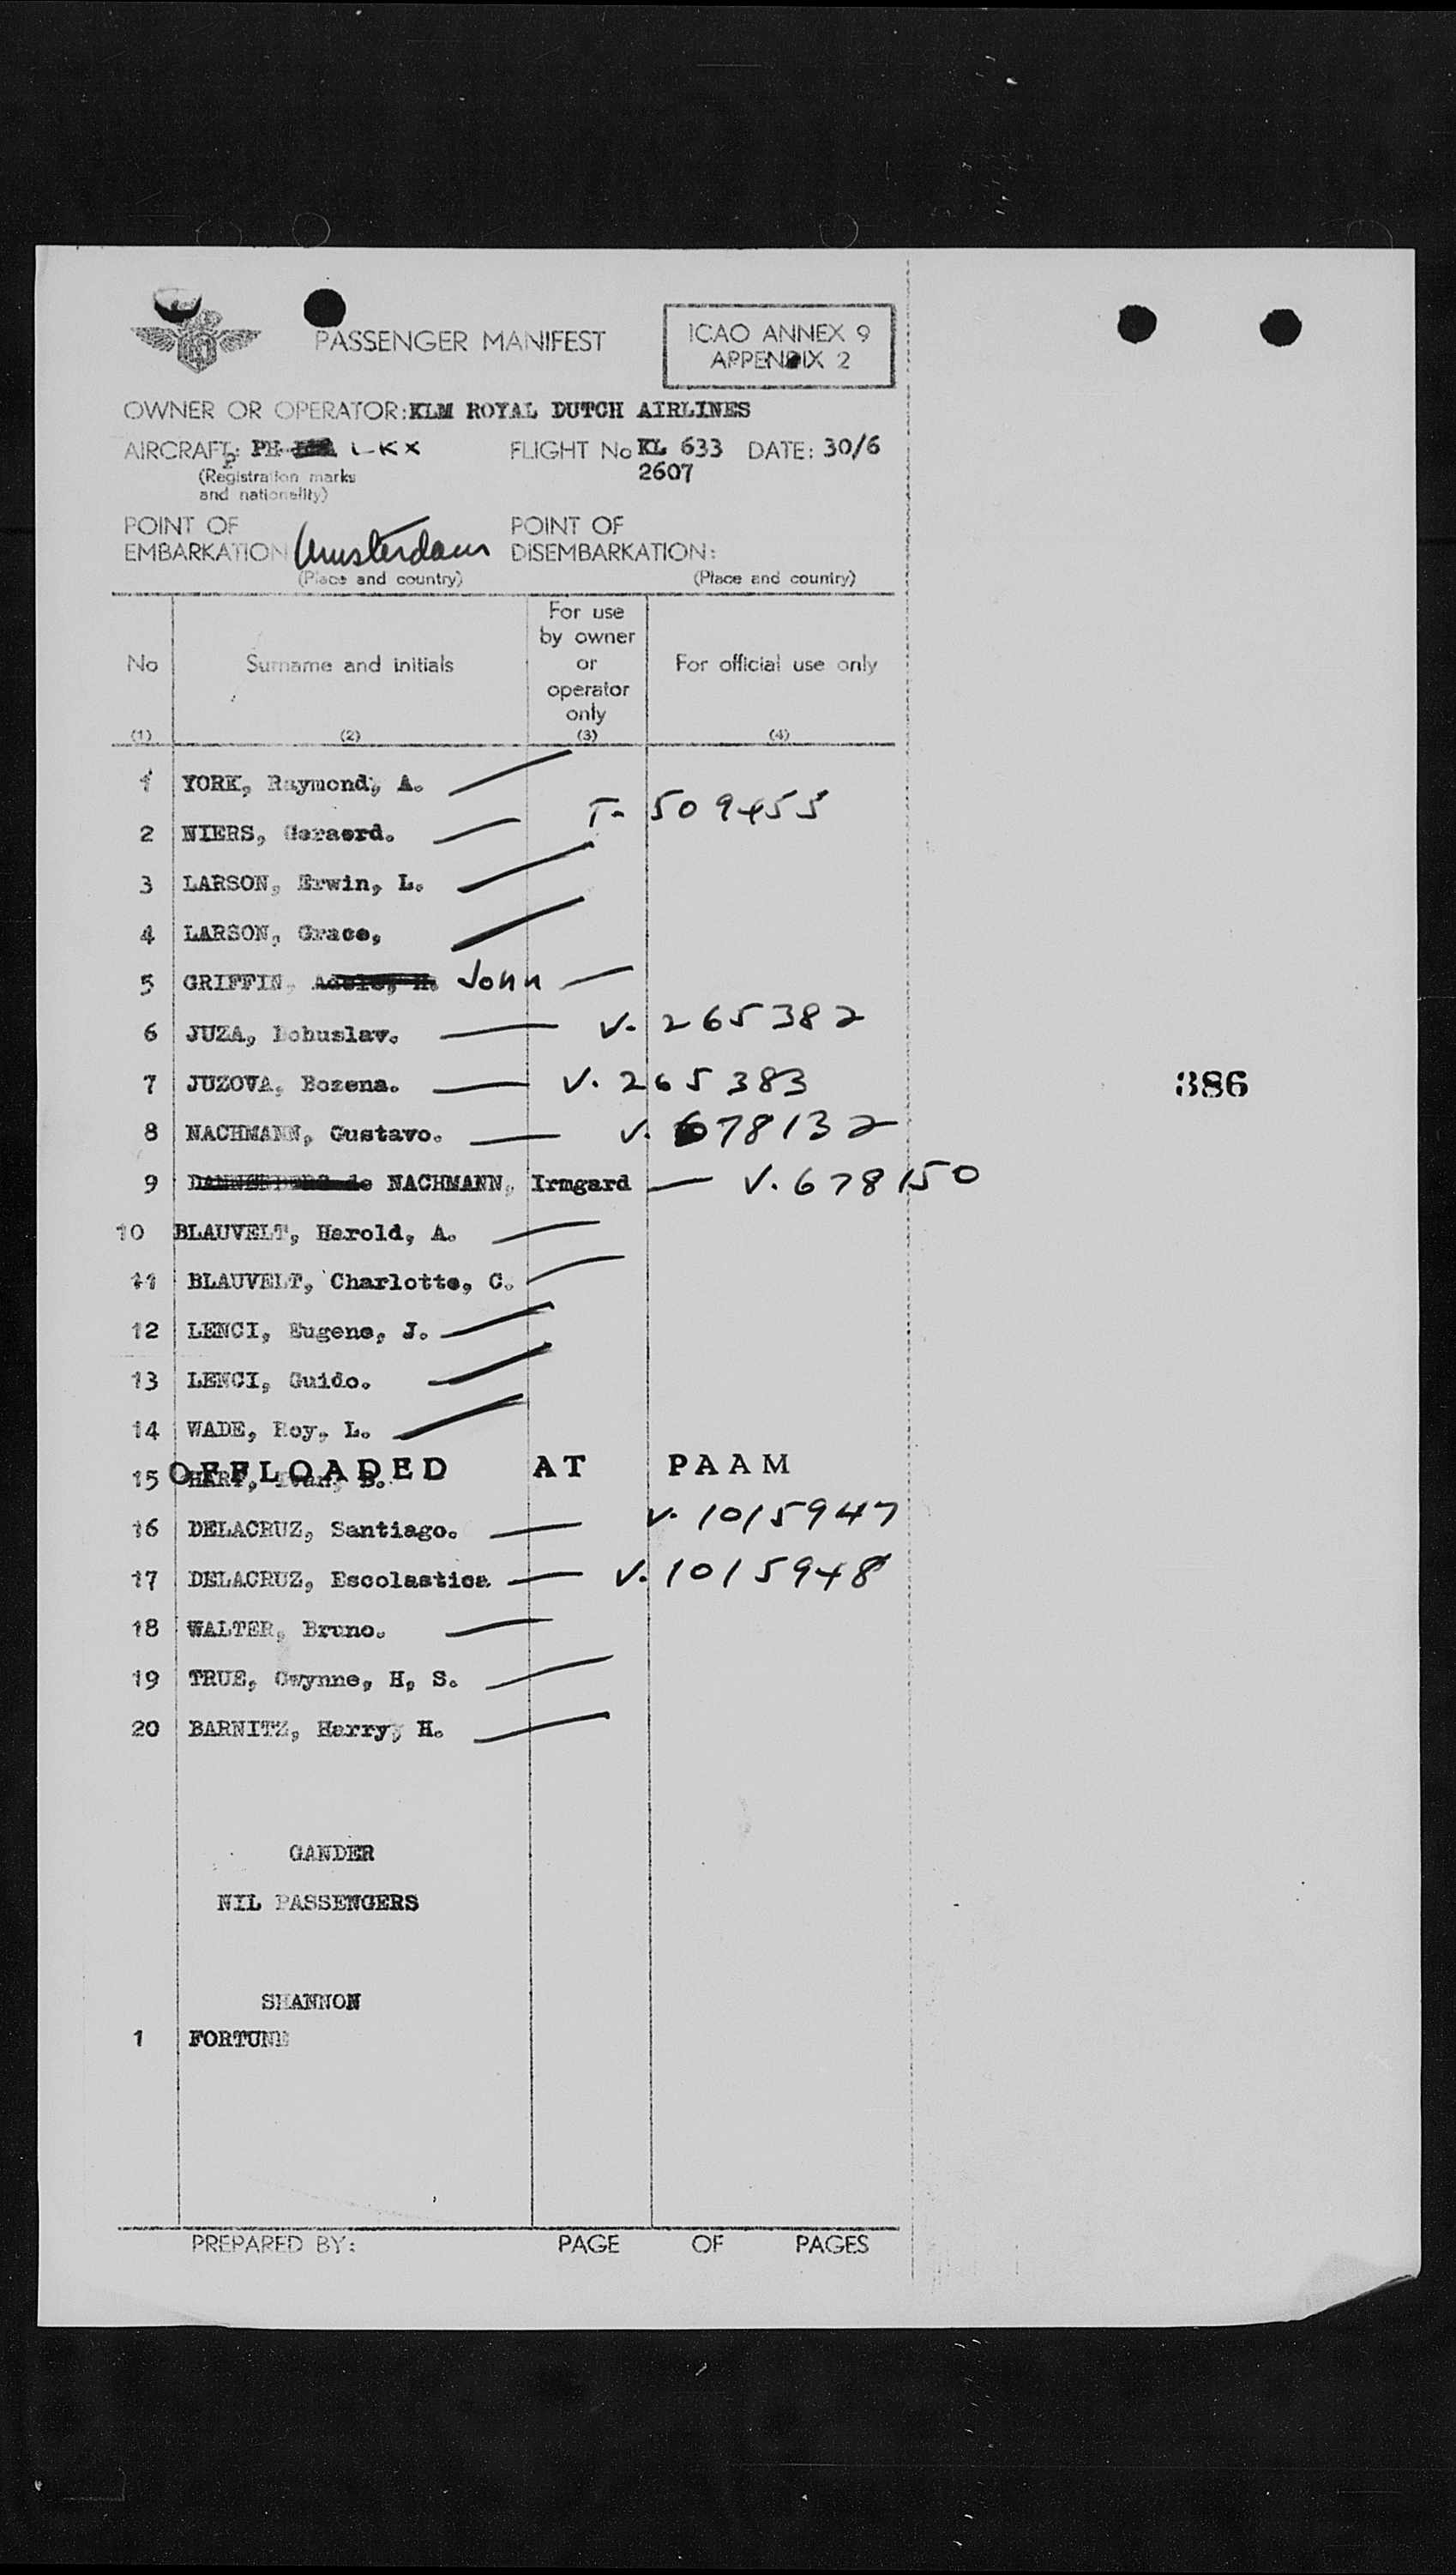 PASSENGER MANIFEST
ICAO ANNEX 9
APPENDIX 2
OWNER OR OPERATOR: KLM ROYAL DUTCH AIRLINES
AIRCRAFT: PH- LKX FLIGHT No KL 633 DATE: 30/6
(Registration marks 2607
and nationality)
POINT OF EMBARKATION Amsterdam
(Place and country)
POINT OF DISEMBARKATION:
(Place and country)
No
(1)
Surname and initials
(2)
For use
by owner
or
operator
only
(3)
For official use only
(4)
1 YORK, Raymond, A.
2 NIERS, Geraerd. T- 509455
3 LARSON, Erwin, L.
4 LARSON, Grace,
5 GRIFFIN, John
6 JUZA, Bohuslav. V. 265382
7 JUZOVA, Bozena. V. 265383
8 NACHMANN, Gustavo. V. 678132
9 NACHMANN, Irmgard V. 678150
10 BLAUVELT, Harold, A.
11 BLAUVELT, Charlotte, C.
12 LENCI, Eugene, J.
13 LENCI, Guido.
14 WADE, Roy, L.
OFFLOADED AT PAAM
15 HART, B.
16 DELACRUZ, Santiago. V. 1015947
17 DELACRUZ, Escolastica V. 1015948
18 WALTER, Bruno.
19 TRUE, Gwynne, H, S.
20 BARNITZ, Harry, H.
386
GANDER
NIL PASSENGERS
SHANNON
1 FORTUNE
PREPARED BY: PAGE OF PAGES